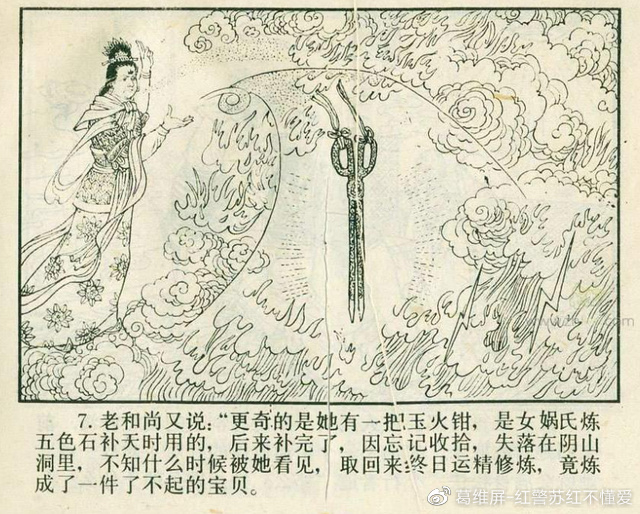 7. 老和尚又说:“更奇的是她有一把玉火钳，是女娲氏炼
五色石补天时用的，后来补完了，因忘记收拾，失落在阴山
洞里，不知什么时候被她看见，取回来终日运精修炼，竟炼
成了一件了不起的宝贝。
@葛维屏-红警苏红不懂爱